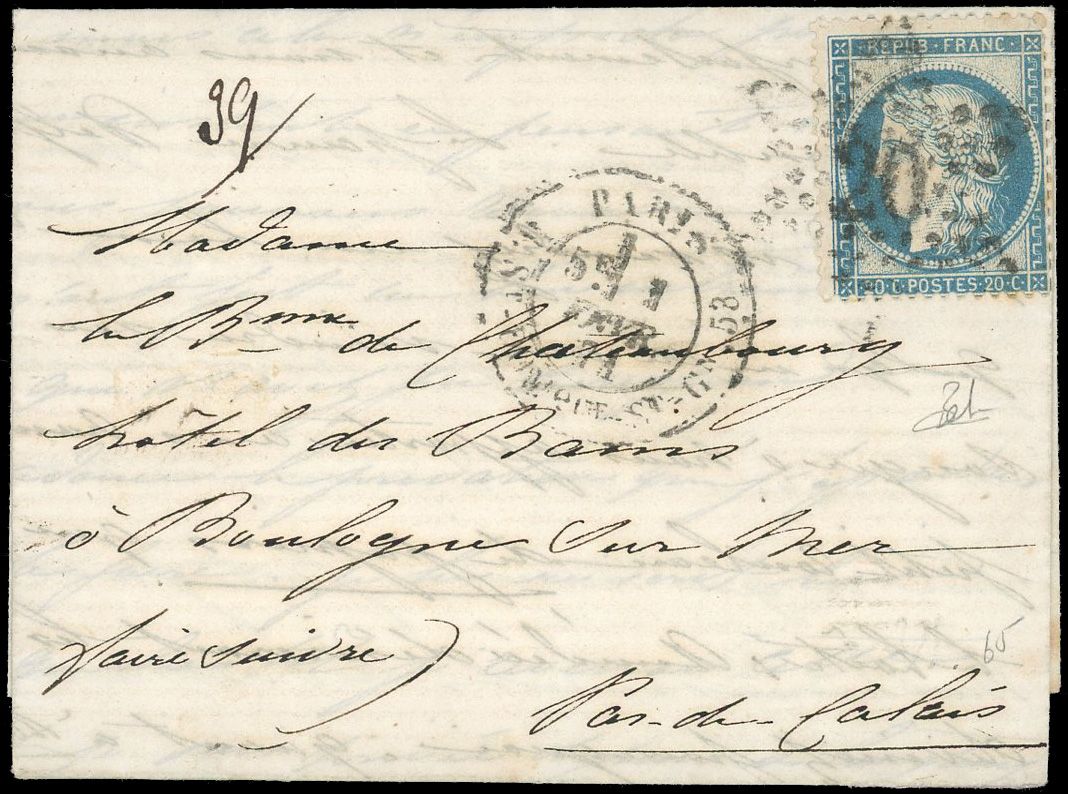 39
REPUB · FRANC ·
20
20·C·POSTES·20·C·
PARIS
5E 1
FEVR
71
53
Madame
la Bnne de Chateaubourg
hôtel des Bains
à Boulogne sur Mer
faire suivre)
Pas-de-Calais
65